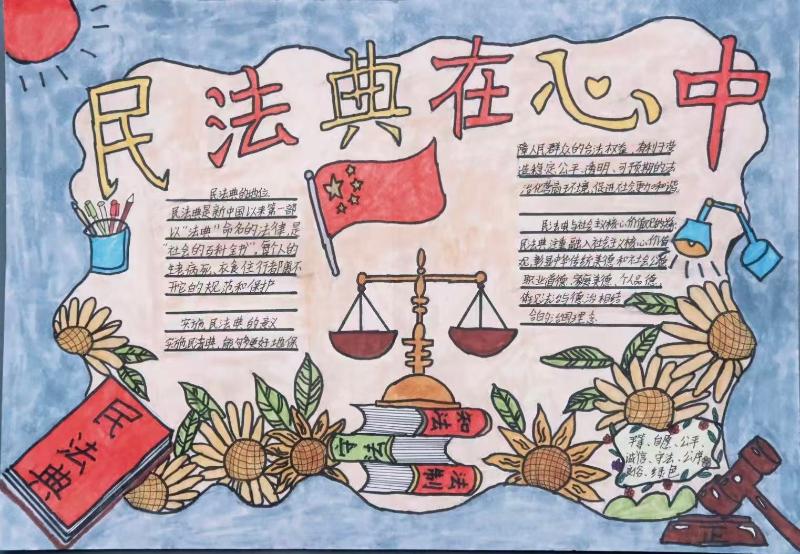 民法典在心中
民法典的地位
民法典是新中国以来第一部
以“法典”命名的法律,是
“社会的百科全书”,每个人的
生老病死,衣食住行都离不
开它的规范和保护
实施民法典的意义
实施民法典,能够更好地保
障人民群众的合法权益,有利于营
造稳定公平、透明、可预期的法
治化营商环境,促进社会更加和谐
民法典与社会主义核心价值观的
民法典注重融入社会主义核心价值
观,彰显中华传统美德和社会公德
职业道德,家庭美德,个人品德,
法治与德治相结
合的治国理念
民法典
知法
法制
平等、自愿、公平、
诚信、守法、公序
良俗、绿色